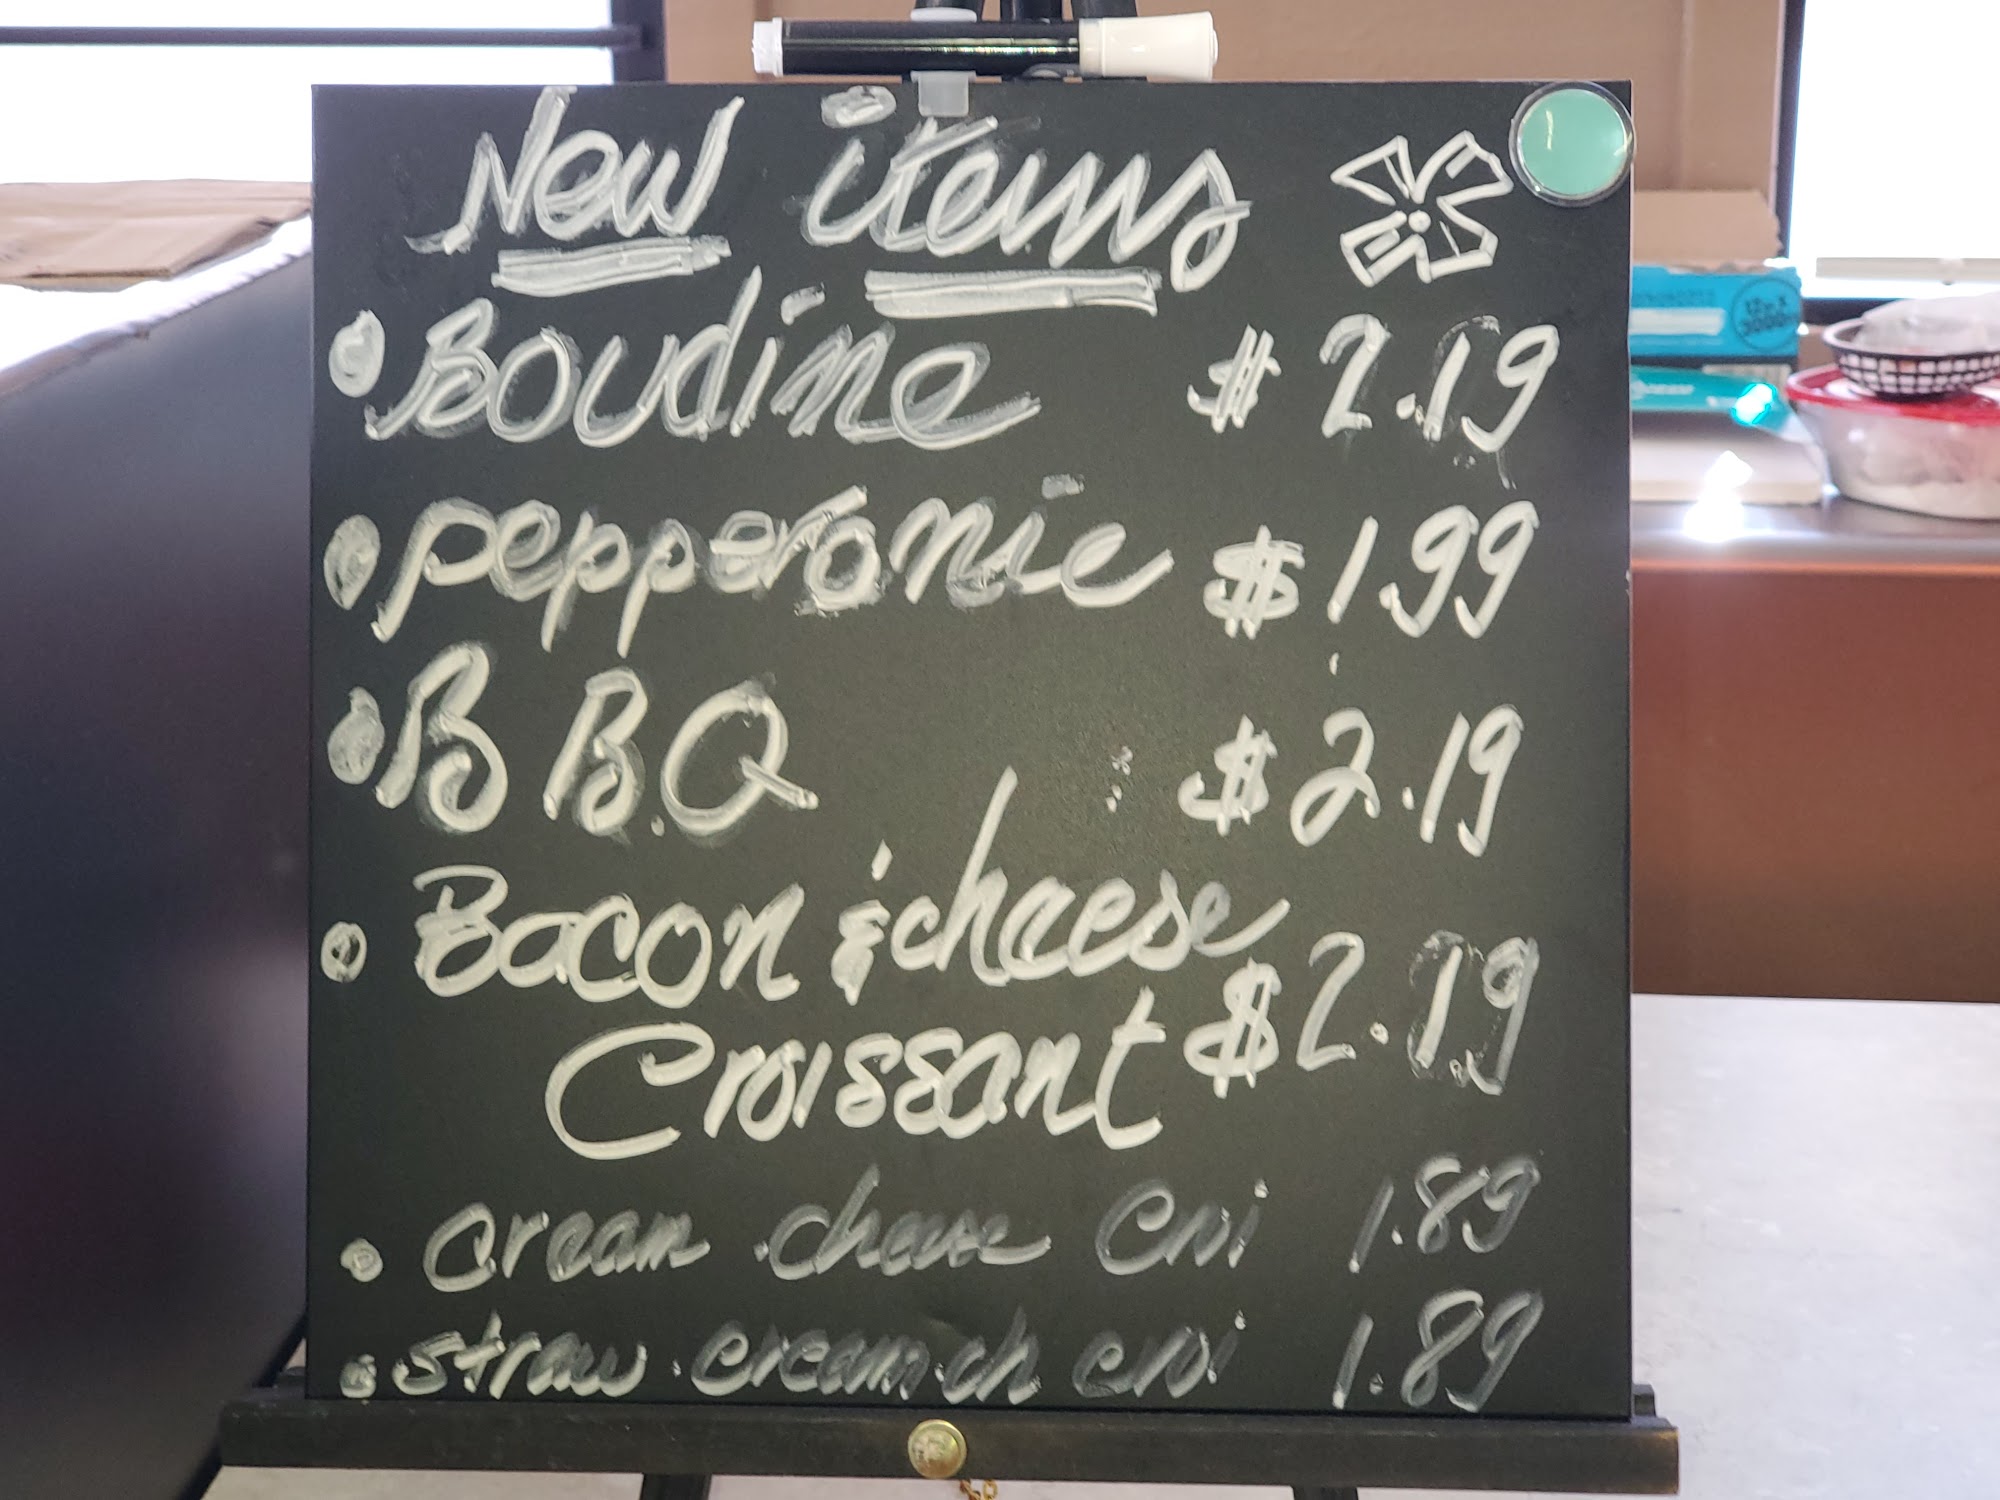 New items
Boudine $2.19
pepperonie $1.99
B B.Q $2.19
Bacon & cheese
Croissant $2.19
cream cheese croi 1.89
straw.cream.ch croi 1.89